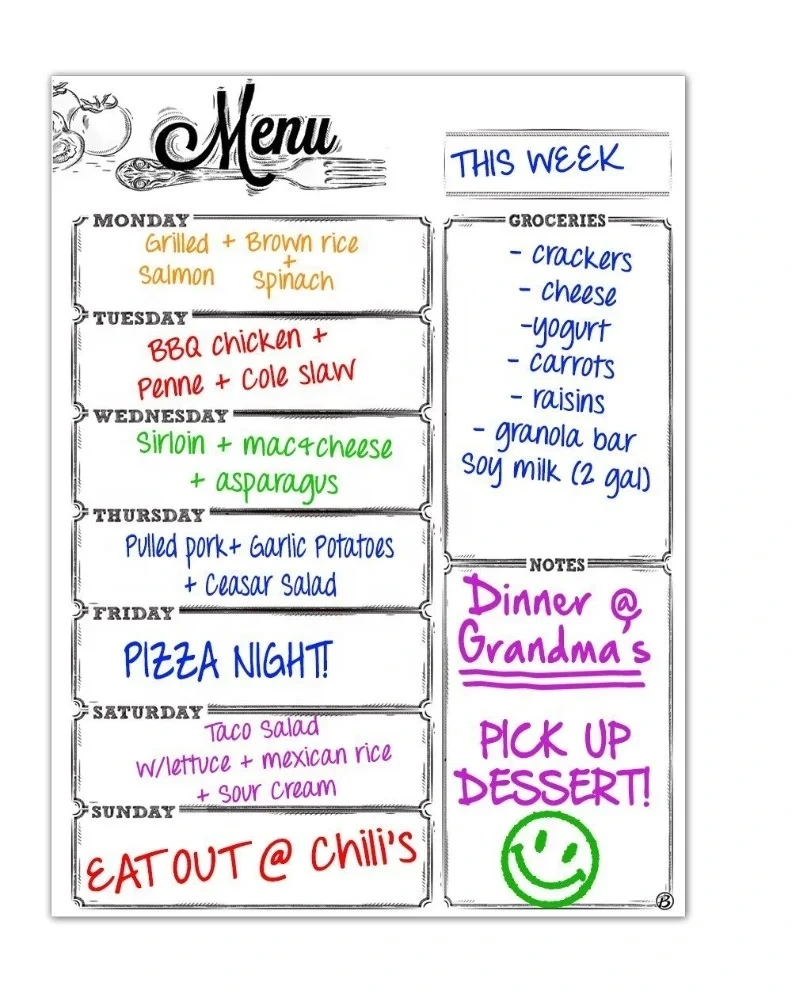 Menu
THIS WEEK
MONDAY
Grilled + Brown rice
+
Salmon Spinach
TUESDAY
BBQ chicken +
Penne + Cole slaw
WEDNESDAY
Sirloin + mac&cheese
+ asparagus
THURSDAY
Pulled pork+ Garlic Potatoes
+ Ceasar Salad
FRIDAY
PIZZA NIGHT!
SATURDAY
Taco Salad
w/lettuce + mexican rice
+ sour cream
SUNDAY
EAT OUT @ Chili's
GROCERIES
- crackers
- cheese
-yogurt
- carrots
- raisins
- granola bar
soy milk (2 gal)
NOTES
Dinner @
Grandma's
PICK UP
DESSERT!
B